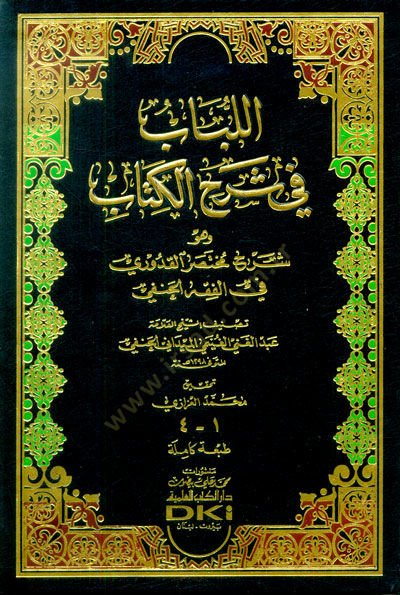 اللُّبَابُ
فِي شَرْحِ الكِتَابِ
وهو
شرح مختصر القدوري
في الفقه الحنفي
تصنيف الشيخ العلامة
عبد الغني الغنيمي الميداني الحنفي
المتوفى ١٢٩٨ هـ سنة
تحقيق
محمد العزازي
١ - ٤
طبعة كاملة
منشورات
محمد علي بيضون
دار الكتب العلمية
DKi
بيروت - لبنان